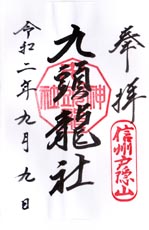 奉拝
信州戸隠山
九頭龍社
令和二年九月九日